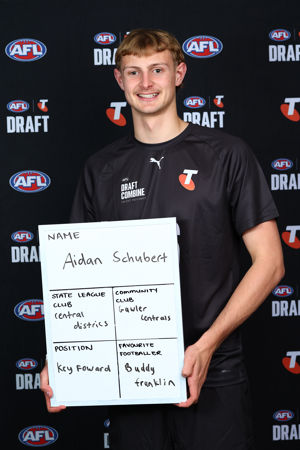 AFL
AFL
DRAFT
AFL
AFL
DRAFT
AFL
T
DRAFT
T
AFL
T
DRAFT
T
AFL
DRAFT
COMBINE
T
AFL
DRAFT
AFL
DRAFT
T
AFL
AFL
DRAFT
AFL
DRAFT
T
AFL
AFL
DRAFT
NAME
Aidan Schubert
STATE LEAGUE
CLUB
Central
districs
COMMUNITY
CLUB
Gawler
Centrals
POSITION
Key Foward
FAVOURITE
FOOTBALLER
Buddy
franklin